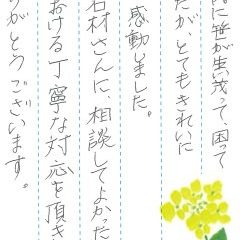 に笹が生い茂って、困って
たが、とてもきれいに
感動しました。
石材さんに、相談してよかった
おける丁寧な対応を頂き
がとうございます。